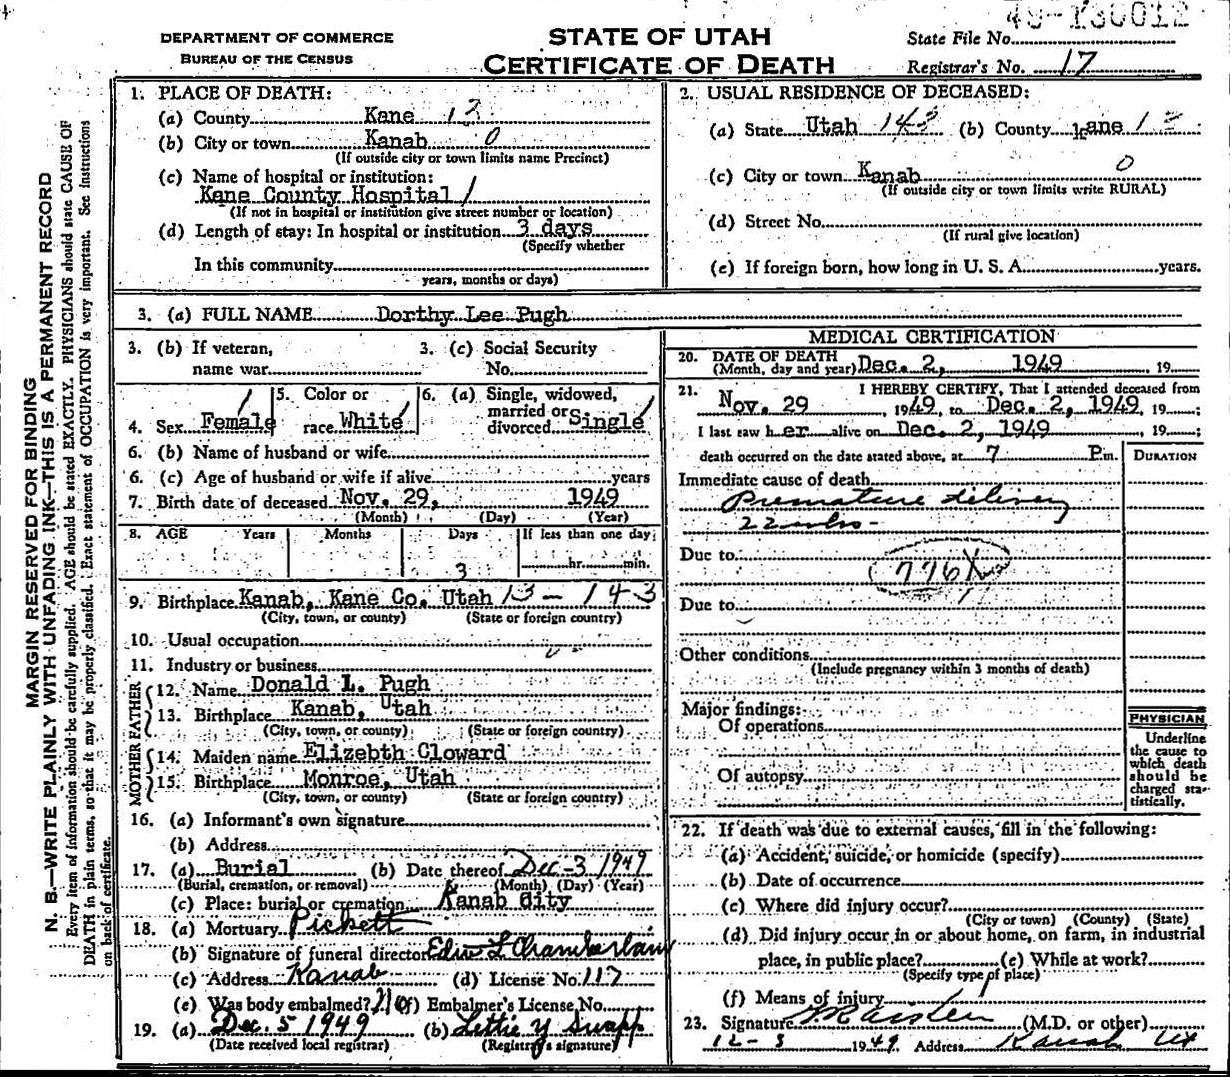 49-130012
DEPARTMENT OF COMMERCE
BUREAU OF THE CENSUS
STATE OF UTAH
CERTIFICATE OF DEATH
State File No.
Registrar's No. 17
MARGIN RESERVED FOR BINDING
N. B.—WRITE PLAINLY WITH UNFADING INK—THIS IS A PERMANENT RECORD
Every item of information should be carefully supplied. AGE should be stated EXACTLY. PHYSICIANS should state CAUSE OF
DEATH in plain terms, so that it may be properly classified. Exact statement of OCCUPATION is very important. See instructions
on back of certificate.
1. PLACE OF DEATH:
(a) County Kane 13
(b) City or town Kanab 0
(If outside city or town limits name Precinct)
(c) Name of hospital or institution:
Kane County Hospital 1
(If not in hospital or institution give street number or location)
(d) Length of stay: In hospital or institution 3 days
(Specify whether
In this community
years, months or days)
2. USUAL RESIDENCE OF DECEASED:
(a) State Utah 143 (b) County Kane 13
(c) City or town Kanab 0
(If outside city or town limits write RURAL)
(d) Street No.
(If rural give location)
(e) If foreign born, how long in U. S. A. years.
3. (a) FULL NAME Dorthy Lee Pugh
3. (b) If veteran, name war
3. (c) Social Security No.
4. Sex Female
5. Color or race White
6. (a) Single, widowed, married or divorced Single
6. (b) Name of husband or wife
6. (c) Age of husband or wife if alive years
7. Birth date of deceased Nov. 29, 1949
(Month) (Day) (Year)
8. AGE Years Months Days If less than one day
3 hr. min.
9. Birthplace Kanab, Kane Co. Utah 13 - 143
(City, town, or county) (State or foreign country)
10. Usual occupation
11. Industry or business
FATHER
12. Name Donald L. Pugh
13. Birthplace Kanab, Utah
(City, town, or county) (State or foreign country)
MOTHER
14. Maiden name Elizebth Cloward
15. Birthplace Monroe, Utah
(City, town, or county) (State or foreign country)
16. (a) Informant's own signature
(b) Address
17. (a) Burial (b) Date thereof Dec-3 1949
(Burial, cremation, or removal) (Month) (Day) (Year)
(c) Place: burial or cremation Kanab City
18. (a) Mortuary Pickett
(b) Signature of funeral director L Chamberlain
(c) Address Kanab (d) License No. 117
(e) Was body embalmed? No (f) Embalmer's License No.
19. (a) Dec. 5 1949 (b) Lettie Y Swapp
(Date received local registrar) (Registrar's signature)
MEDICAL CERTIFICATION
20. DATE OF DEATH
(Month, day and year) Dec. 2, 1949, 19
21. I HEREBY CERTIFY, That I attended deceased from
Nov. 29, 1949, to Dec. 2, 1949, 19 ;
I last saw her alive on Dec. 2, 1949, 19 ;
death occurred on the date stated above, at 7 P.m.
DURATION
Immediate cause of death
Premature delivery
22 wks-
Due to
776X
Due to
Other conditions
(Include pregnancy within 3 months of death)
Major findings:
Of operations
Of autopsy
PHYSICIAN
Underline
the cause to
which death
should be
charged sta-
tistically.
22. If death was due to external causes, fill in the following:
(a) Accident, suicide, or homicide (specify)
(b) Date of occurrence
(c) Where did injury occur?
(City or town) (County) (State)
(d) Did injury occur in or about home, on farm, in industrial
place, in public place? (e) While at work?
(Specify type of place)
(f) Means of injury
23. Signature (M.D. or other)
12-3 1949 Address Kanab Ut